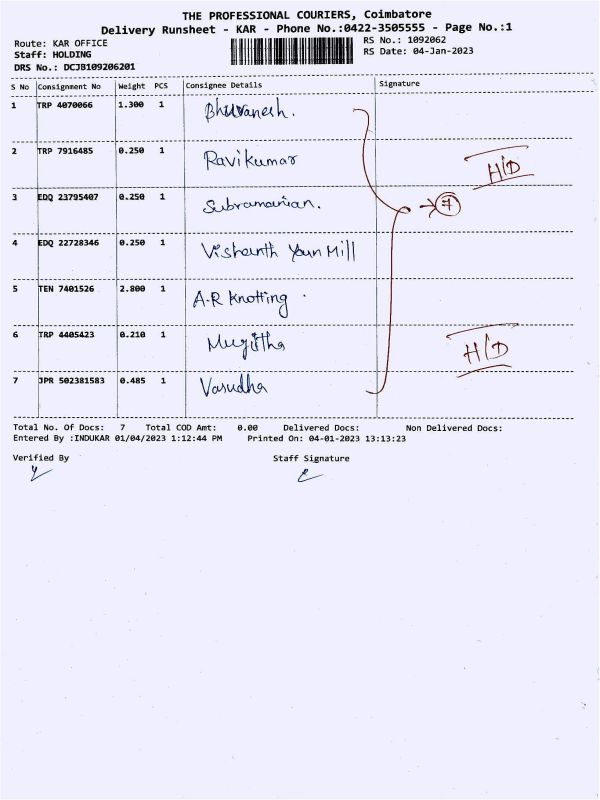 THE PROFESSIONAL COURIERS, Coimbatore
Delivery Runsheet - KAR - Phone No.:0422-3505555 - Page No.:1
Route: KAR OFFICE
RS No.: 1092062
Staff: HOLDING
RS Date: 04-Jan-2023
DRS No.: DCJB109206201
S No Consignment No Weight PCS Consignee Details Signature
1 TRP 4070066 1.300 1 Bhuvanesh.
2 TRP 7916485 0.250 1 Ravikumar H/D
3 EDQ 23795407 0.250 1 Subramanian. 7
4 EDQ 22728346 0.250 1 Vishanth Yarn Mill
5 TEN 7401526 2.800 1 A.R Knotting
6 TRP 4405423 0.210 1 H/D
7 JPR 502381583 0.485 1 Vasudha
Total No. Of Docs: 7 Total COD Amt: 0.00 Delivered Docs: Non Delivered Docs:
Entered By :INDUKAR 01/04/2023 1:12:44 PM Printed On: 04-01-2023 13:13:23
Verified By Staff Signature